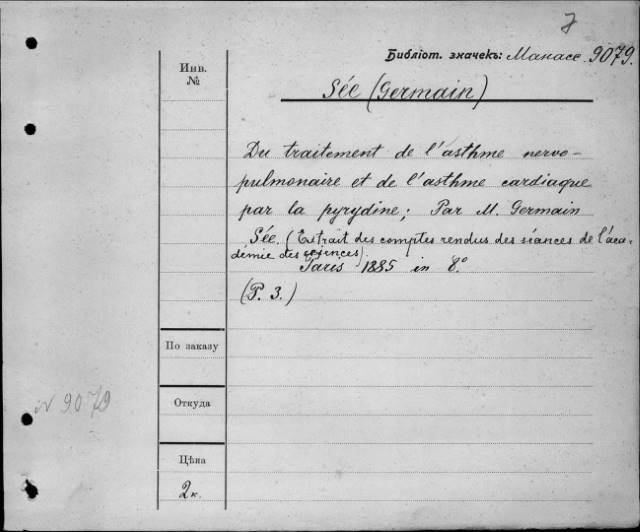 7
Библіот. значекъ: Манассе. 9079.
Инв.
№
Sée (Germain)
Du traitement de l'asthme nervo-
pulmonaire et de l'asthme cardiaque
par la pyrydine; Par M. Germain
Sée. (Extrait des comptes rendus des séances de l'aca-
démie des sciences).
Paris 1885 in 8.º
(P. 3.)
По заказу
N 9079
Откуда
Цѣна
2к.